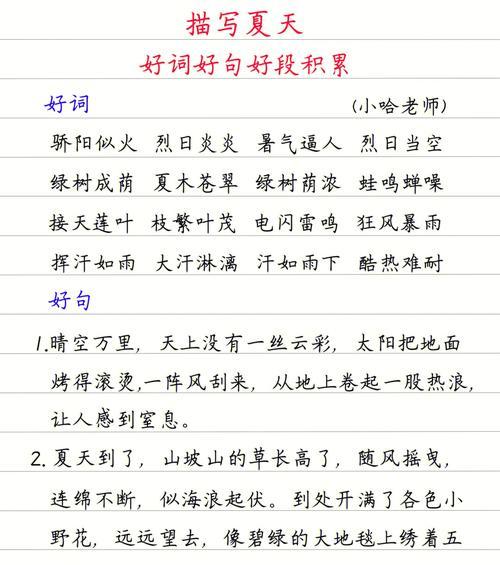 描写夏天
好词好句好段积累
好词 (小哈老师)
骄阳似火 烈日炎炎 暑气逼人 烈日当空
绿树成荫 夏木苍翠 绿树荫浓 蛙鸣蝉噪
接天莲叶 枝繁叶茂 电闪雷鸣 狂风暴雨
挥汗如雨 大汗淋漓 汗如雨下 酷热难耐
好句
1.晴空万里，天上没有一丝云彩，太阳把地面
烤得滚烫,一阵风刮来，从地上卷起一股热浪，
让人感到窒息。
2.夏天到了，山坡山的草长高了，随风摇曳，
连绵不断，似海浪起伏。到处开满了各色小
野花，远远望去，像碧绿的大地毯上绣着五